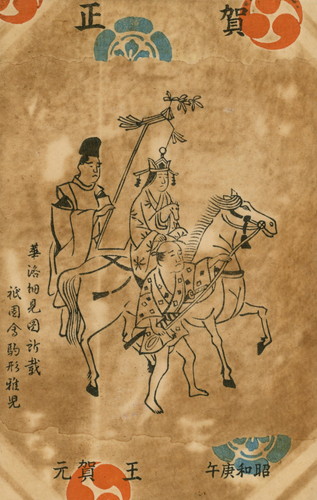 賀正
華洛細見図所載
祇園會駒形稚児
昭和庚午
王賀元